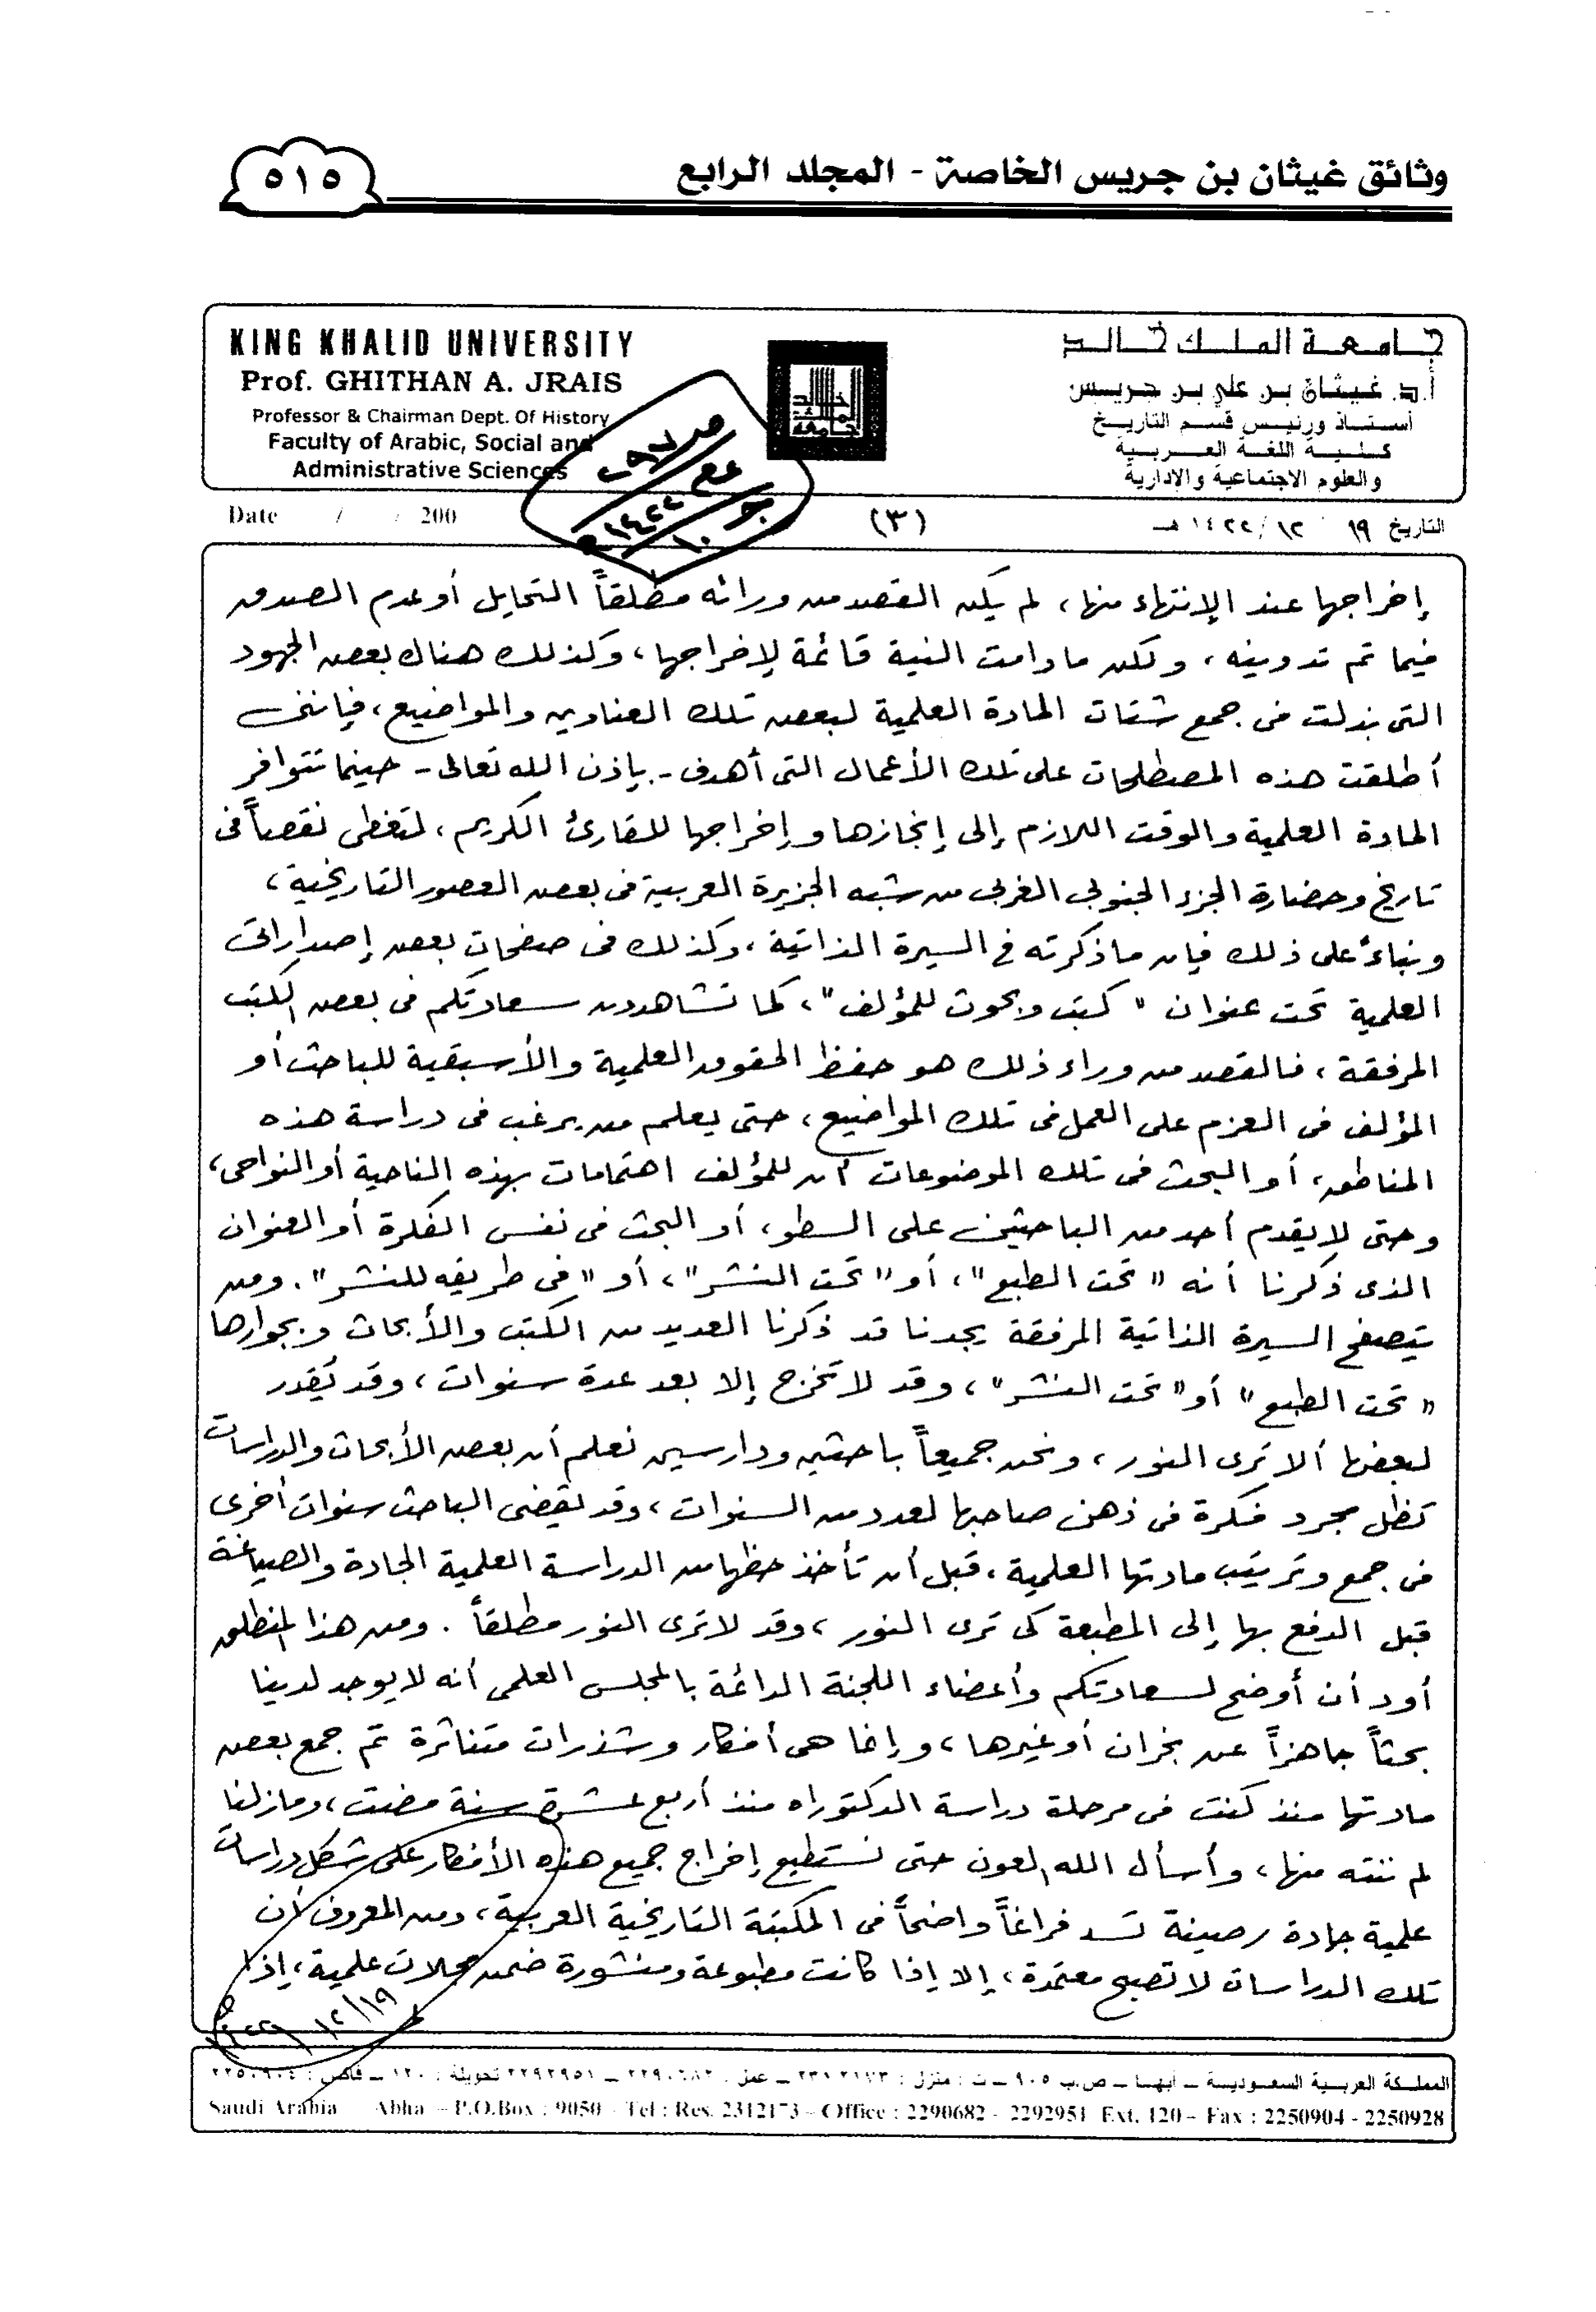 وثائق غيثان بن جريس الخاصة - المجلد الرابع
٥١٥
جامعة الملك خالد
أ.د. غيثان بن علي بن جريس
أستاذ ورئيس قسم التاريخ
كلية اللغة العربية
والعلوم الاجتماعية والإدارية
KING KHALID UNIVERSITY
Prof. GHITHAN A. JRAIS
Professor & Chairman Dept. Of History
Faculty of Arabic, Social and
Administrative Sciences
التاريخ ١٩ / ١٢ / ١٤٢٢ هـ
(٣)
Date / / 200
إخراجها عند الإنتهاء منها، لم يكن القصد من ورائه مطلقاً التحايل أو عدم الصدق
فيما تم تدوينه، ولكن مادامت النية قائمة لإخراجها، وكذلك هناك بعض الجهود
التى بذلت فى جمع شتات المادة العلمية لبعض تلك العناوين والمواضيع، فإننى
أطلقت هذه المصطلحات على تلك الأعمال التى أهدف - بإذن الله تعالى - حينما تتوافر
المادة العلمية والوقت اللازم إلى إنجازها وإخراجها للقارئ الكريم، لتغطى نقصاً فى
تاريخ وحضارة الجزء الجنوبى الغربى من شبه الجزيرة العربية فى بعض العصور التاريخية،
وبناءً على ذلك فإن ماذكرته فى السيرة الذاتية، وكذلك فى صفحات بعض إصداراتى
العلمية تحت عنوان "كتب وبحوث للمؤلف"، كما تشاهدون سعادتكم فى بعض الكتب
المرفقة، فالقصد من وراء ذلك هو حفظ الحقوق العلمية والأسبقية للباحث أو
المؤلف فى العزم على العمل فى تلك المواضيع، حتى يعلم من يرغب فى دراسة هذه
المناطق، أو البحث فى تلك الموضوعات أن للمؤلف اهتمامات بهذه الناحية أو النواحى،
وحتى لا يقدم أحد من الباحثين على السطو، أو البحث فى نفس الفكرة أو العنوان
الذى ذكرنا أنه "تحت الطبع"، أو "تحت النشر"، أو "فى طريقه للنشر". ومن
يتصفح السيرة الذاتية المرفقة يجدنا قد ذكرنا العديد من الكتب والأبحاث وبجوارها
"تحت الطبع" أو "تحت النشر"، وقد لا تخرج إلا بعد عدة سنوات، وقد يُقدر
لبعضها ألا ترى النور، ونحن جميعاً باحثين ودارسين نعلم أن بعض الأبحاث والدراسات
تظل مجرد فكرة فى ذهن صاحبها لعدد من السنوات، وقد يقضى الباحث سنوات أخرى
فى جمع وترتيب مادتها العلمية، قبل أن تأخذ حظها من الدراسة العلمية الجادة والصياغة
قبل الدفع بها إلى المطبعة كى ترى النور، وقد لا ترى النور مطلقاً. ومن هذا المنطلق
أود أن أوضح لسعادتكم وأعضاء اللجنة الدائمة بالمجلس العلمى أنه لا يوجد لدينا
بحثاً جاهزاً عن نجران أو غيرها، وإنما هى أفكار وشذرات متناثرة تم جمع بعض
مادتها منذ كنت فى مرحلة دراسة الدكتوراه منذ أربع عشرة سنة مضت، ومازلنا
لم ننته منها، وأسأل الله العون حتى نستطيع إخراج جميع هذه الأفكار على شكل دراسات
علمية جادة رصينة تسد فراغاً واضحاً فى المكتبة التاريخية العربية، ومن المعروف أن
تلك الدراسات لا تصبح معتمدة، إلا إذا كانت مطبوعة ومنشورة ضمن مجلات علمية، إذا
١٢/١٩
المملكة العربية السعودية – أبهـا – ص.ب ٩٠٥ – ت : منزل : ٢٣١٢١٧٣ – عمل : ٢٢٩٠٦٨٢ – ٢٢٩٢٩٥١ تحويلة : ١٢٠ – فاكس : ٢٢٥٠٩٠٤
Saudi Arabia Abha – P.O.Box : 9050 – Tel : Res. 2312173 – Office : 2290682 - 2292951 Ext. 120 – Fax : 2250904 - 2250928